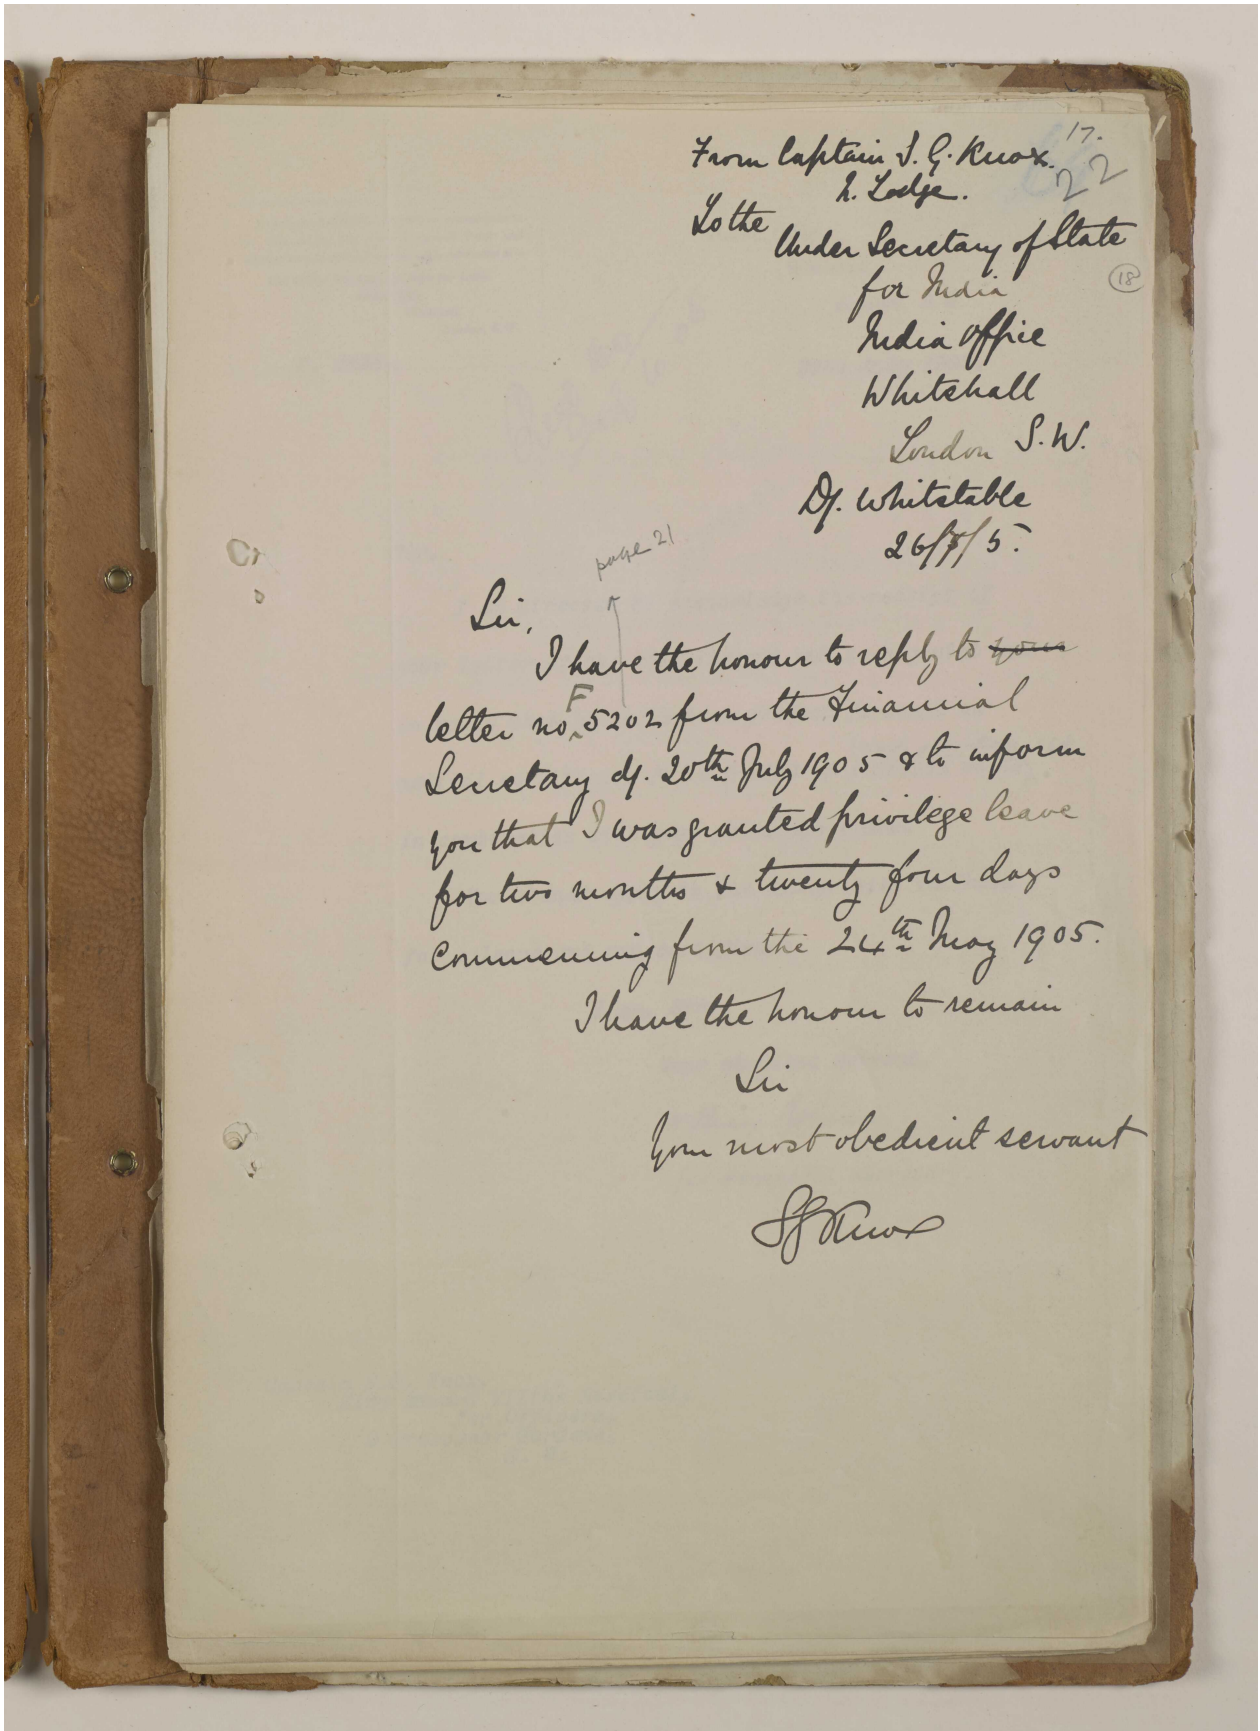 17.
From Captain S. G. Knox.
22
N. Lodge.
To the
Under Secretary of State
18
for India
India Office
Whitehall
London S.W.
Df. Whitstable
26/7/5.
page 21
Sir,
I have the honour to reply to your
letter no. F 5202 from the Financial
Secretary df. 20th July 1905 & to inform
you that I was granted privilege leave
for two months & twenty four days
commencing from the 24th May 1905.
I have the honour to remain
Sir
Your most obedient servant
SG Knox